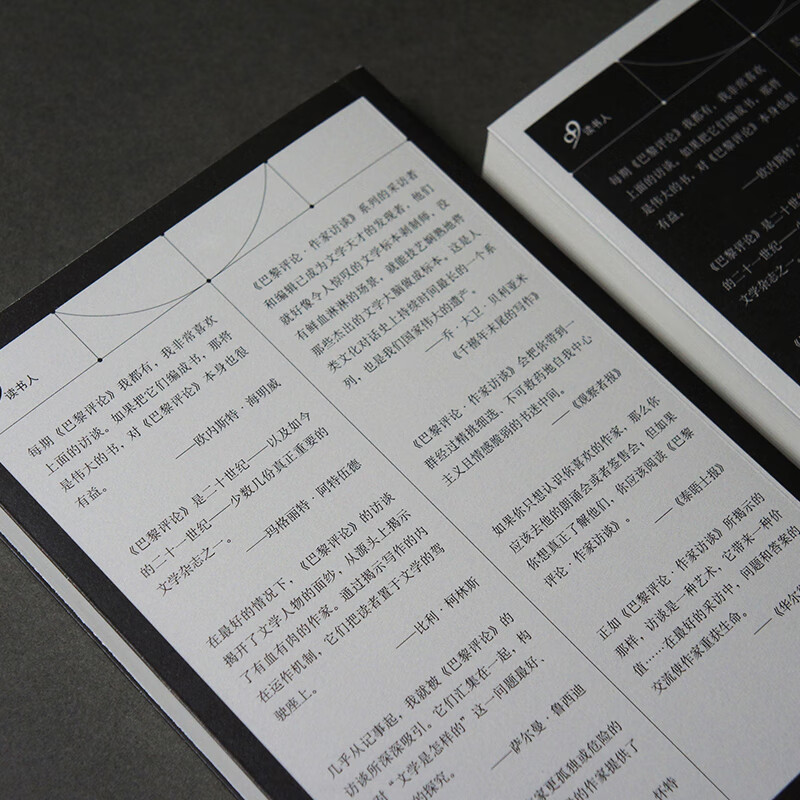 读书人
每期《巴黎评论》我都有，我非常喜欢
上面的访谈。如果把它们编成书，那将
是伟大的书，对《巴黎评论》本身也很
有益。
——欧内斯特·海明威
《巴黎评论》是二十世纪——以及如今
的二十一世纪——少数几份真正重要的
文学杂志之一。
——玛格丽特·阿特伍德
在最好的情况下，《巴黎评论》的访谈
揭开了文学人物的面纱，从源头上揭示
了有血有肉的作家。通过揭示写作的内
在运作机制，它们把读者置于文学的驾
驶座上。
——比利·柯林斯
几乎从记事起，我就被《巴黎评论》的
访谈所深深吸引。它们汇集在一起，构
对“文学是怎样的”这一问题最好、
的探究。
——萨尔曼·鲁西迪
家更孤独或危险的
的作家提供了
怀特
《巴黎评论·作家访谈》系列的采访者
和编辑已成为文学天才的发现者，他们
就好像令人惊叹的文学标本剥制师，没
有鲜血淋淋的场景，就能技艺娴熟地将
那些杰出的文学大脑做成标本。这是人
类文化对话史上持续时间最长的一个系
列，也是我们国家伟大的遗产。
——乔·大卫·贝利亚米
《千禧年末尾的写作》
《巴黎评论·作家访谈》会把你带到一
群经过精挑细选、不可救药地自我中心
主义且情感脆弱的书迷中间。
——《观察者报》
如果你只想认识你喜欢的作家，那么你
应该去他的朗诵会或者签售会，但如果
你想真正了解他们，你应该阅读《巴黎
评论·作家访谈》。
——《泰晤士报》
正如《巴黎评论·作家访谈》所揭示的
那样，访谈是一种艺术，它带来一种价
值……在最好的采访中，问题和答案的
交流使作家重获生命。
——《华尔
读书人
每期《巴黎评论》我都有，我非常喜欢
上面的访谈。如果把它们编成书，那将
是伟大的书，对《巴黎评论》本身也很
有益。
——欧内斯特·
《巴黎评论》是二十世
的二十一世纪——
文学杂志之一。